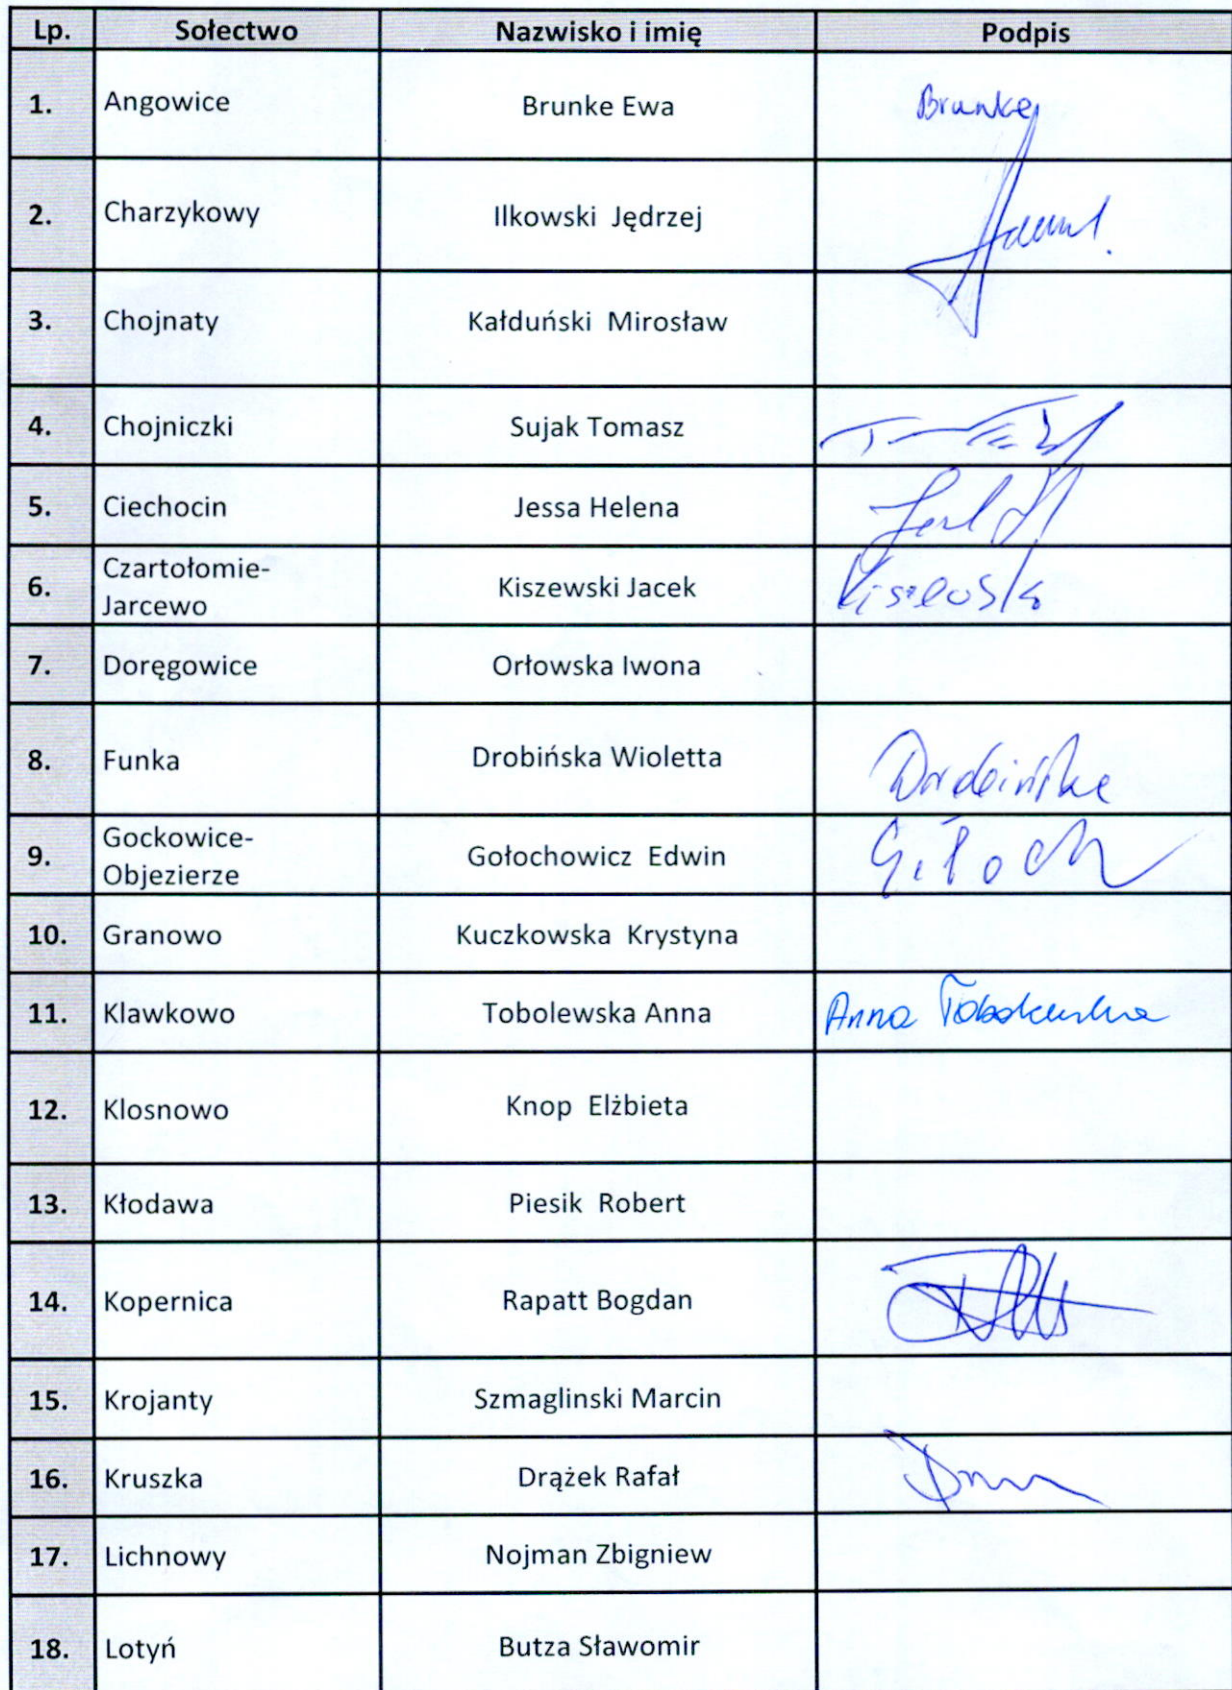 Lp. Sołectwo Nazwisko i imię Podpis
1. Angowice Brunke Ewa Brunke
2. Charzykowy Ilkowski Jędrzej
3. Chojnaty Kałduński Mirosław
4. Chojniczki Sujak Tomasz
5. Ciechocin Jessa Helena
6. Czartołomie-
Jarcewo Kiszewski Jacek
7. Doręgowice Orłowska Iwona
8. Funka Drobińska Wioletta
9. Gockowice-
Objezierze Gołochowicz Edwin
10. Granowo Kuczkowska Krystyna
11. Klawkowo Tobolewska Anna Anna Tobolewska
12. Klosnowo Knop Elżbieta
13. Kłodawa Piesik Robert
14. Kopernica Rapatt Bogdan
15. Krojanty Szmaglinski Marcin
16. Kruszka Drążek Rafał
17. Lichnowy Nojman Zbigniew
18. Lotyń Butza Sławomir